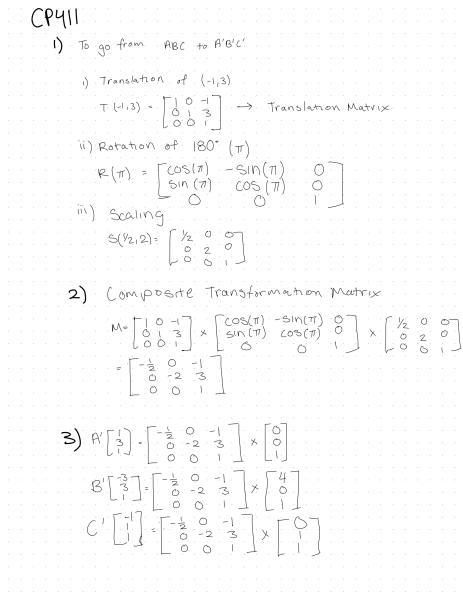 CP411
1) To go from ABC to A'B'C'
i) Translation of (-1,3)
T(-1,3) = [1 0 -1
0 1 3
0 0 1] → Translation Matrix
ii) Rotation of 180° (π)
R(π) = [cos(π) -sin(π) 0
sin(π) cos(π) 0
0 0 1]
iii) Scaling
S(1/2,2) = [1/2 0 0
0 2 0
0 0 1]
2) Composite Transformation Matrix
M = [1 0 -1 × [cos(π) -sin(π) 0 × [1/2 0 0
0 1 3 sin(π) cos(π) 0 0 2 0
0 0 1] 0 0 1] 0 0 1]
= [-1/2 0 -1
0 -2 3
0 0 1]
3) A' [1 = [-1/2 0 -1 × [0
3 0 -2 3 0
1] 0 0 1] 1]
B' [-3 = [-1/2 0 -1 × [4
3 0 -2 3 0
1] 0 0 1] 1]
C' [-1 = [-1/2 0 -1 × [0
1 0 -2 3 1
1] 0 0 1] 1]